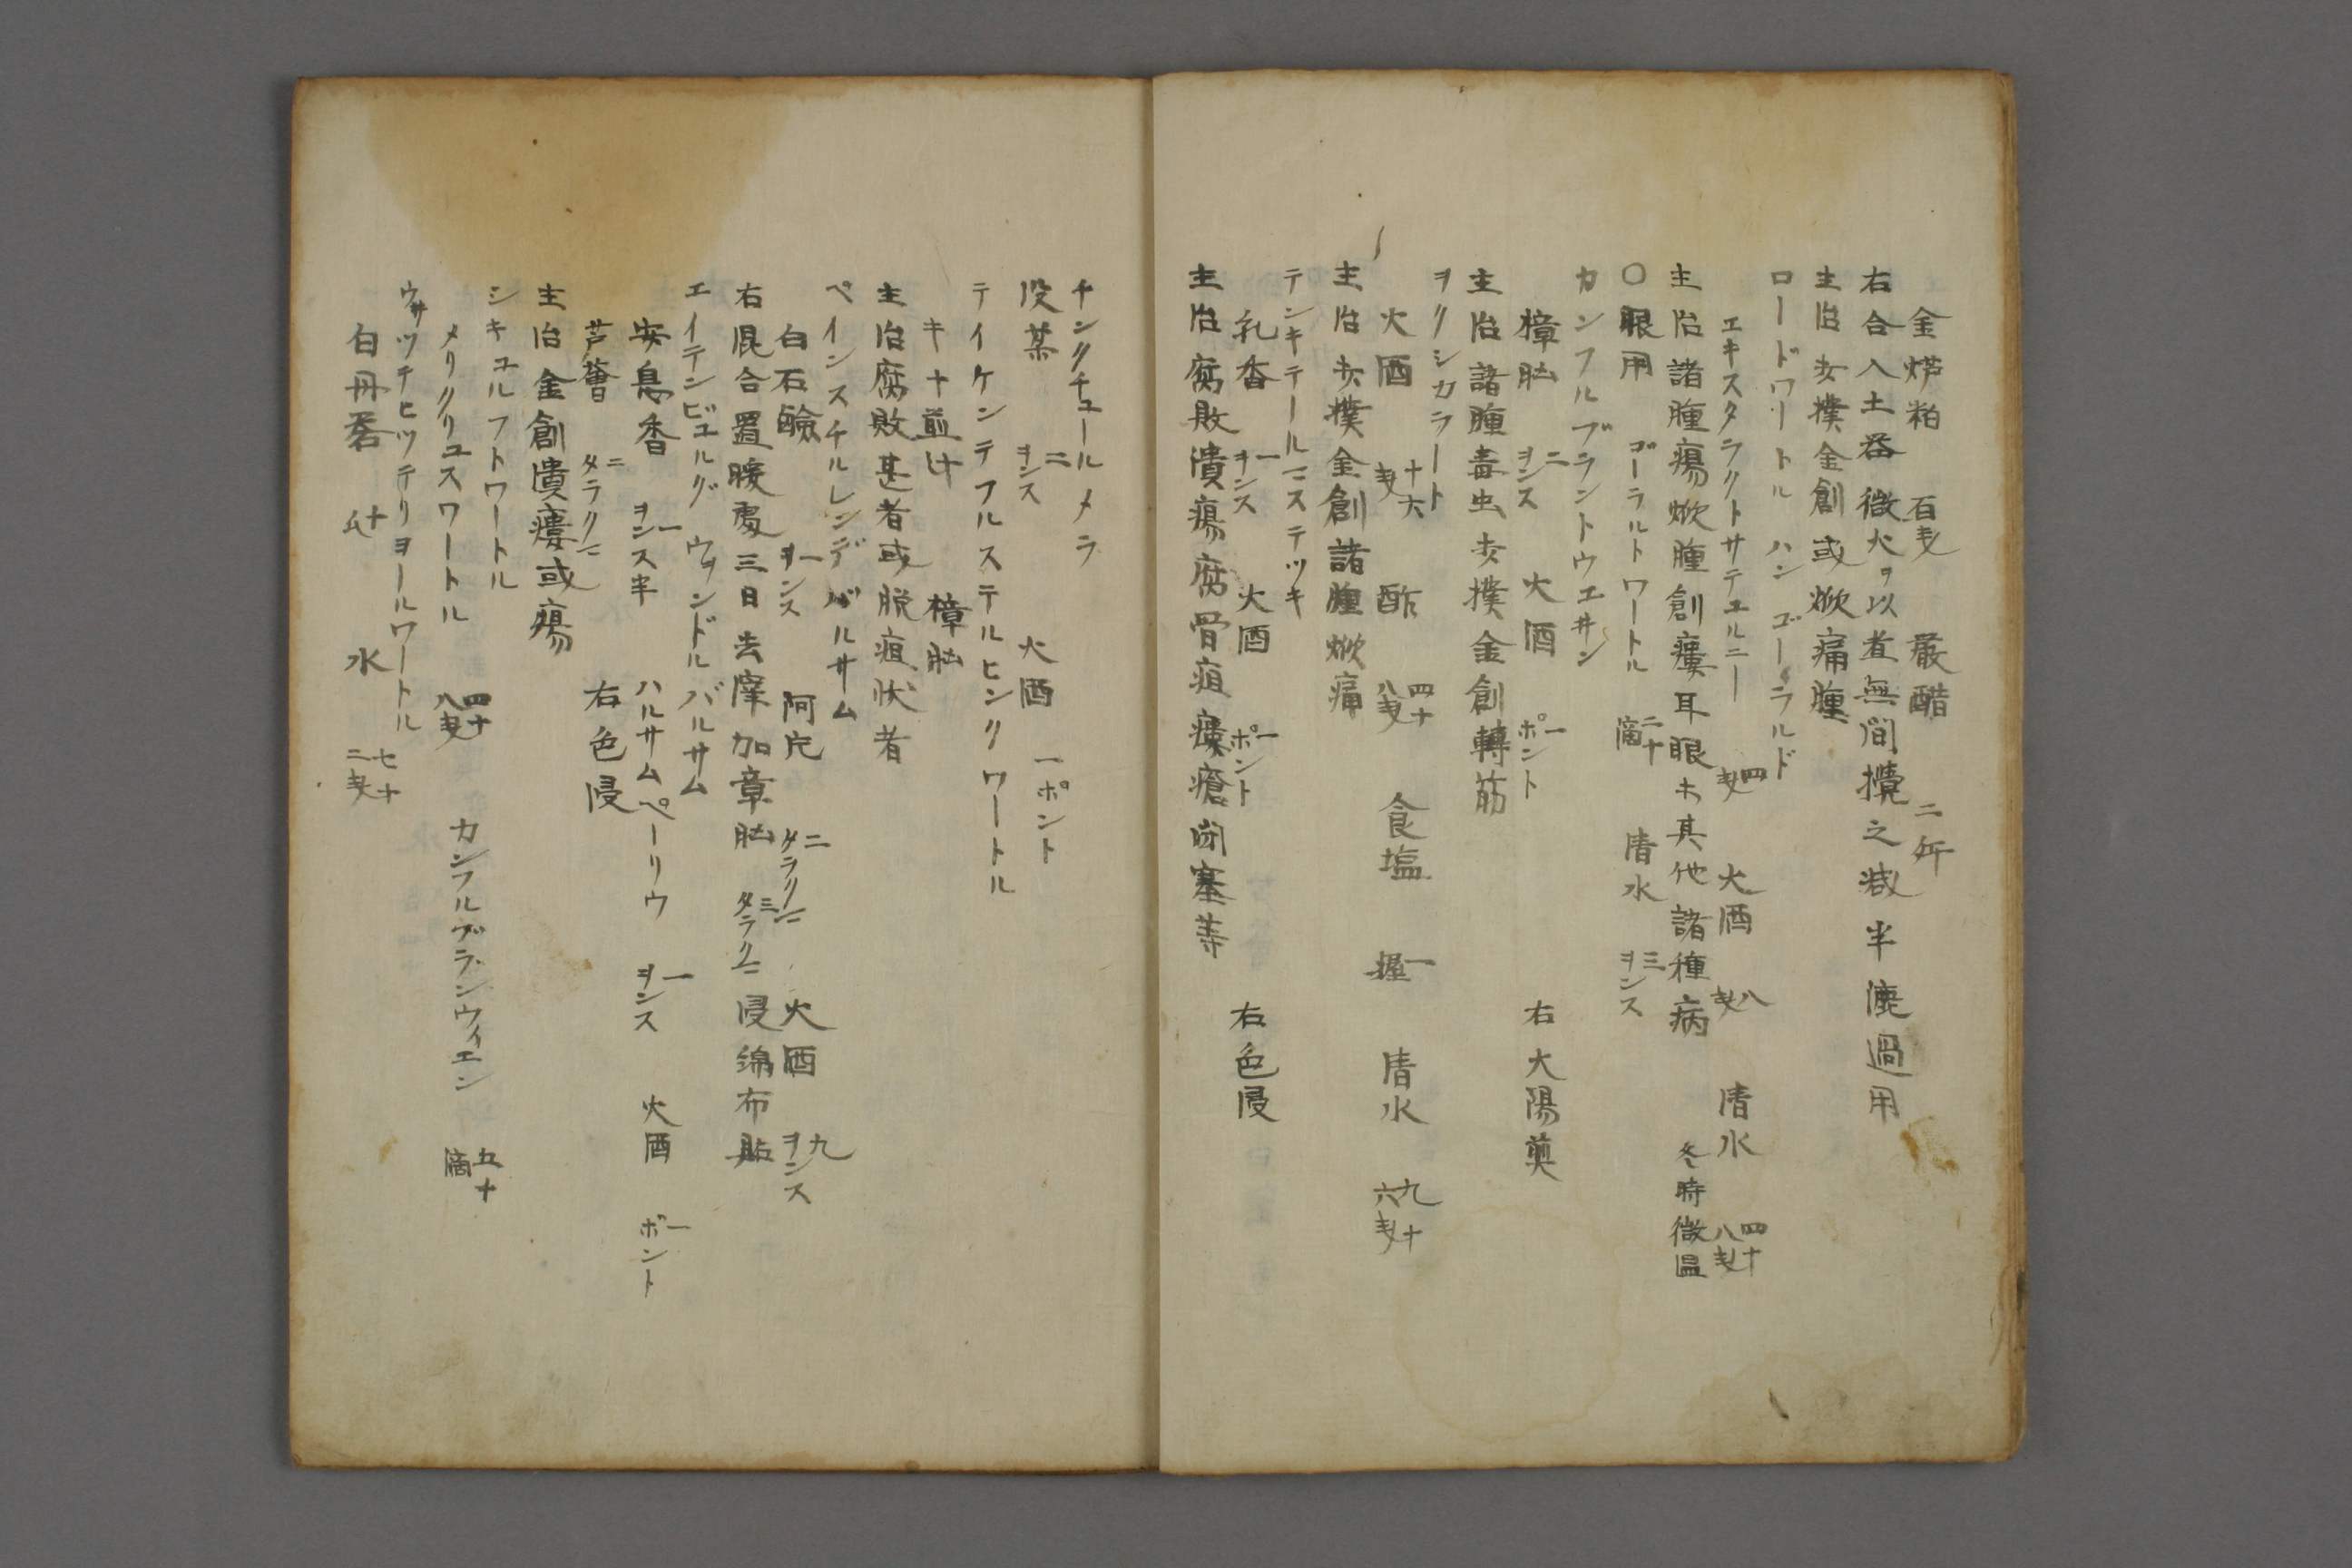 金炉粕 百匁 厳醋 二斤
右合入土器微火ヲ以煮無間攪之減半漉過用
主治打撲金創或焮痛腫
ロードワートル ハン ゴーラルド
エキスタラクトサテユルニー 四匁 火酒 八匁 清水 四十八匁
主治諸腫瘍焮腫創瘻耳眼其他諸種病 冬時微温
〇眼用 ゴーラルトワートル 二十滴 清水 三ヲンス
カンフルブラントウエヰン
樟脳 二ヲンス 火酒 一ポント 右大陽奠
主治諸腫毒虫打撲金創轉筋
ヲクシカラート
火酒 十六匁 酢 四十八匁 食塩 一握 清水 九十六匁
主治打撲金創諸腫焮痛
テンキテールミステツキ
乳香 一ヲンス 火酒 一ポント 右色浸
主治腐敗潰瘍腐骨疽瘻瘡閉塞等
チンクチユールメラ
没薬 二ヲンス 火酒 一ポント
テイケンテフルステルヒンクワートル
キナ煎汁 樟脳
主治腐敗甚者或脱疽状者
ペインスチルレンデバルサム
白石鹸 一ヲンス 阿片 二タラクニ 火酒 九ヲンス
右混合置暖処三日去滓加章脳 三タラクニ 浸綿布貼
エイテンビユルグ ウヲンドル バルサム
安息香 一ヲンス半 ハルサムペーリウ 一ヲンス 火酒 一ポント
芦薈 二タラクニ 右色浸
主治金創潰瘻或瘍
シキユルフトワートル
メリクリユスワートル 四十八匁 カンフルブランウィエン 五十滴
ウヲツチヒツテリヲールワートル
白丹礬 十 水 七十二匁